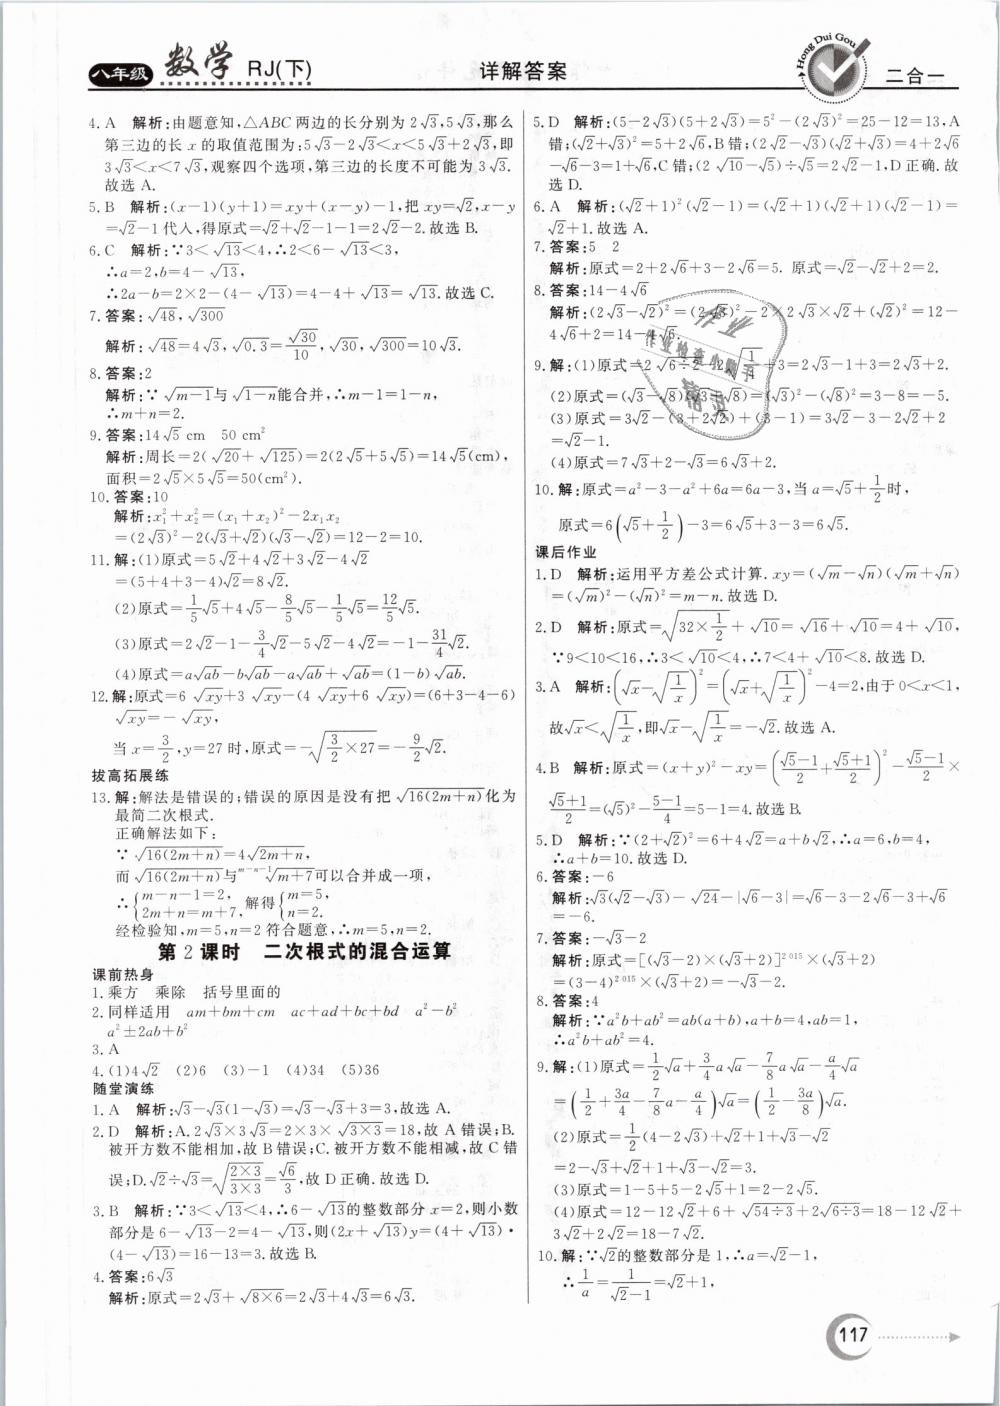 八年级 数学 RJ(下)
详解答案
Hong Dui Gou
二合一
4. A 解析:由题意知,△ABC 两边的长分别为 2√3,5√3,那么
第三边的长 x 的取值范围为:5√3-2√3<x<5√3+2√3,即
3√3<x<7√3,观察四个选项,第三边的长度不可能为 3√3.
故选 A.
5. B 解析:(x-1)(y+1)=xy+(x-y)-1,把 xy=√2,x-y
=√2-1 代人,得原式=√2+√2-1-1=2√2-2.故选 B.
6. C 解析:∵3<√13<4,∴2<6-√13<3,
∴a=2,b=4-√13,
∴2a-b=2×2-(4-√13)=4-4+√13=√13.故选 C.
7. 答案:√48,√300
解析:√48=4√3,√0.3=√30/10,√30,√300=10√3.
8. 答案:2
解析:∵√m-1与√1-n能合并,∴m-1=1-n,
∴m+n=2.
9. 答案:14√5 cm 50 cm²
解析:周长=2(√20+√125)=2(2√5+5√5)=14√5(cm),
面积=2√5×5√5=50(cm²).
10. 答案:10
解析:x₁²+x₂²=(x₁+x₂)²-2x₁x₂
=(2√3)²-2(√3+√2)(√3-√2)=12-2=10.
11. 解:(1)原式=5√2+4√2+3√2-4√2
=(5+4+3-4)√2=8√2.
(2)原式=1/5√5+4√5-8/5√5-1/5√5=12/5√5.
(3)原式=2√2-1-3/4√2-5√2-4√2=-1-31/4√2.
(4)原式=a√ab-b√ab-a√ab+√ab=(1-b)√ab.
12. 解:原式=6√xy+3√xy-(4√xy+6√xy)=(6+3-4-6)
√xy=-√xy,
当 x=3/2,y=27 时,原式=-√(3/2×27)=-9/2√2.
拔高拓展练
13. 解:解法是错误的;错误的原因是没有把√16(2m+n)化为
最简二次根式.
正确解法如下:
∵√16(2m+n)=4√2m+n,
而√16(2m+n)与 ᵐ⁻ⁿ⁻¹√m+7可以合并成一项,
∴{m-n-1=2, 2m+n=m+7, 解得{m=5, n=2.
经检验知,m=5,n=2 符合题意,∴m=5,n=2.
第 2 课时 二次根式的混合运算
课前热身
1. 乘方 乘除 括号里面的
2. 同样适用 am+bm+cm ac+ad+bc+bd a²-b²
a²±2ab+b²
3. A
4. (1)4√2 (2)6 (3)-1 (4)34 (5)36
随堂演练
1. A 解析:√3-√3(1-√3)=√3-√3+3=3,故选 A.
2. D 解析:A. 2√3×3√3=2×3×√3×3=18,故 A 错误;B.
被开方数不能相加,故 B 错误;C. 被开方数不能相减,故 C 错
误;D. √2÷√3=√(2×3/3×3)=√6/3,故 D 正确.故选 D.
3. B 解析:∵3<√13<4,∴6-√13的整数部分 x=2,则小数
部分是 6-√13-2=4-√13,则(2x+√13)y=(4+√13)·
(4-√13)=16-13=3.故选 B.
4. 答案:6√3
解析:原式=2√3+√8×6=2√3+4√3=6√3.
5. D 解析:(5-2√3)(5+2√3)=5²-(2√3)²=25-12=13,A
错;(√2+√3)²=5+2√6,B 错;(2√2-√3)(√2+√3)=4+2√6
-√6-3=1+√6,C 错;(2√10-√5)÷√5=2√2-1,D 正确.故
选 D.
6. A 解析:(√2+1)²(√2-1)=(√2+1)(√2+1)(√2-1)=
√2+1.故选 A.
7. 答案:5 2
解析:原式=2+2√6+3-2√6=5. 原式=√2-√2+2=2.
8. 答案:14-4√6
解析:(2√3-√2)²=(2√3)²-2×2√3×√2+(√2)²=12-
4√6+2=14-4√6.
9. 解:(1)原式=2√6÷2√2√1/4+3=2√3-1+3=2√3+2.
(2)原式=(√3-√8)(√3+√8)=(√3)²-(√8)²=3-8=-5.
(3)原式=3√2-(3+2√2)+(3-1)=3√2-3-2√2+2
=√2-1.
(4)原式=7√3+2-√3=6√3+2.
10. 解:原式=a²-3-a²+6a=6a-3,当 a=√5+1/2时,
原式=6(√5+1/2)-3=6√5+3-3=6√5.
课后作业
1. D 解析:运用平方差公式计算. xy=(√m-√n)(√m+√n)
=(√m)²-(√n)²=m-n.故选 D.
2. D 解析:原式=√(32×1/2)+√10=√16+√10=4+√10,
∵9<10<16,∴3<√10<4,∴7<4+√10<8.故选 D.
3. A 解析:(√x-√(1/x))²=(√x+√(1/x))²-4=2,由于 0<x<1,
故√x<√(1/x),即√x-√(1/x)=-√2.故选 A.
4. B 解析:原式=(x+y)²-xy=((√5-1)/2+(√5+1)/2)²-(√5-1)/2×
(√5+1)/2=(√5)²-(5-1)/4=5-1=4.故选 B.
5. D 解析:∵(2+√2)²=6+4√2=a+b√2,∴a=6,b=4,
∴a+b=10.故选 D.
6. 答案:-6
解析:√3(√2-√3)-√24-|√6-3|=√6-3-2√6-3+√6
=-6.
7. 答案:-√3-2
解析:原式=[(√3-2)×(√3+2)]²⁰¹⁵×(√3+2)
=(3-4)²⁰¹⁵×(√3+2)=-√3-2.
8. 答案:4
解析:∵a²b+ab²=ab(a+b),a+b=4,ab=1,
∴a²b+ab²=4.
9. 解:(1)原式=1/2√a+3/4a√a-7/8a√a-a/4√a
=(1/2+3a/4-7/8a-a/4)√a=(1/2-3a/8)√a.
(2)原式=1/2(4-2√3)+√2+1+√3-√2
=2-√3+√2+1+√3-√2=3.
(3)原式=1-5+5-2√5+1=2-2√5.
(4)原式=12-12√2+6+√54÷3+2√6÷3=18-12√2+
3√2+2√2=18-7√2.
10. 解:∵√2的整数部分是 1,∴a=√2-1,
∴1/a=1/(√2-1)=√2+1,
作业
作业检查小助手
117